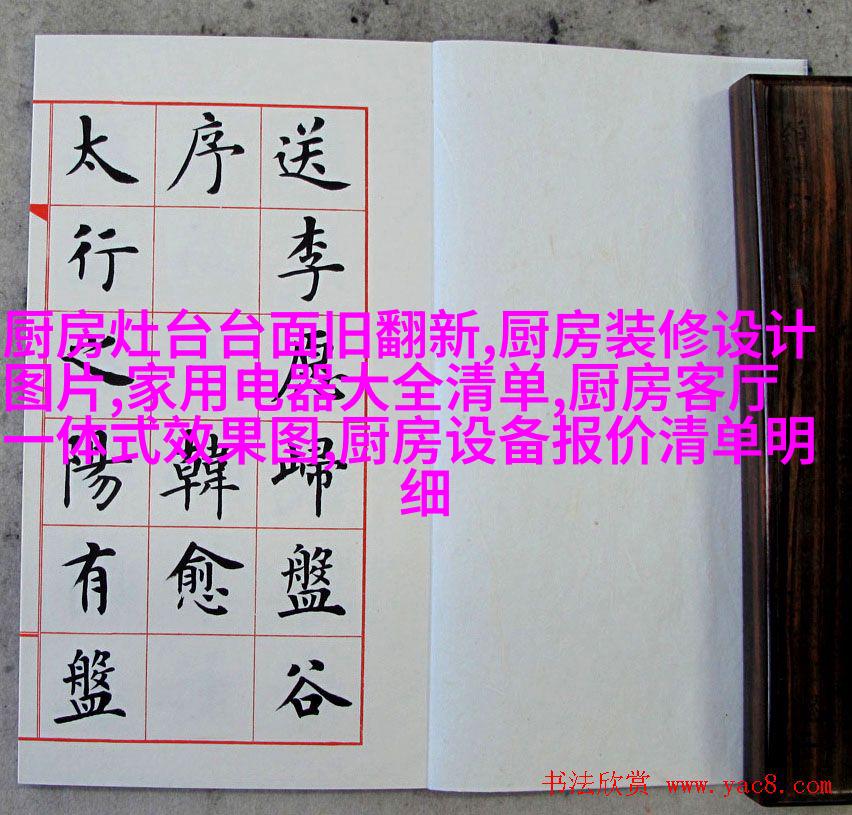 送李愿歸盤谷
序 韓愈
太行之陽有盤
厨房灶台台面旧翻新,厨房装修设计
图片,家用电器大全清单,厨房客厅
一体式效果图,厨房设备报价清单明
细
书法欣赏 www.yac8.com